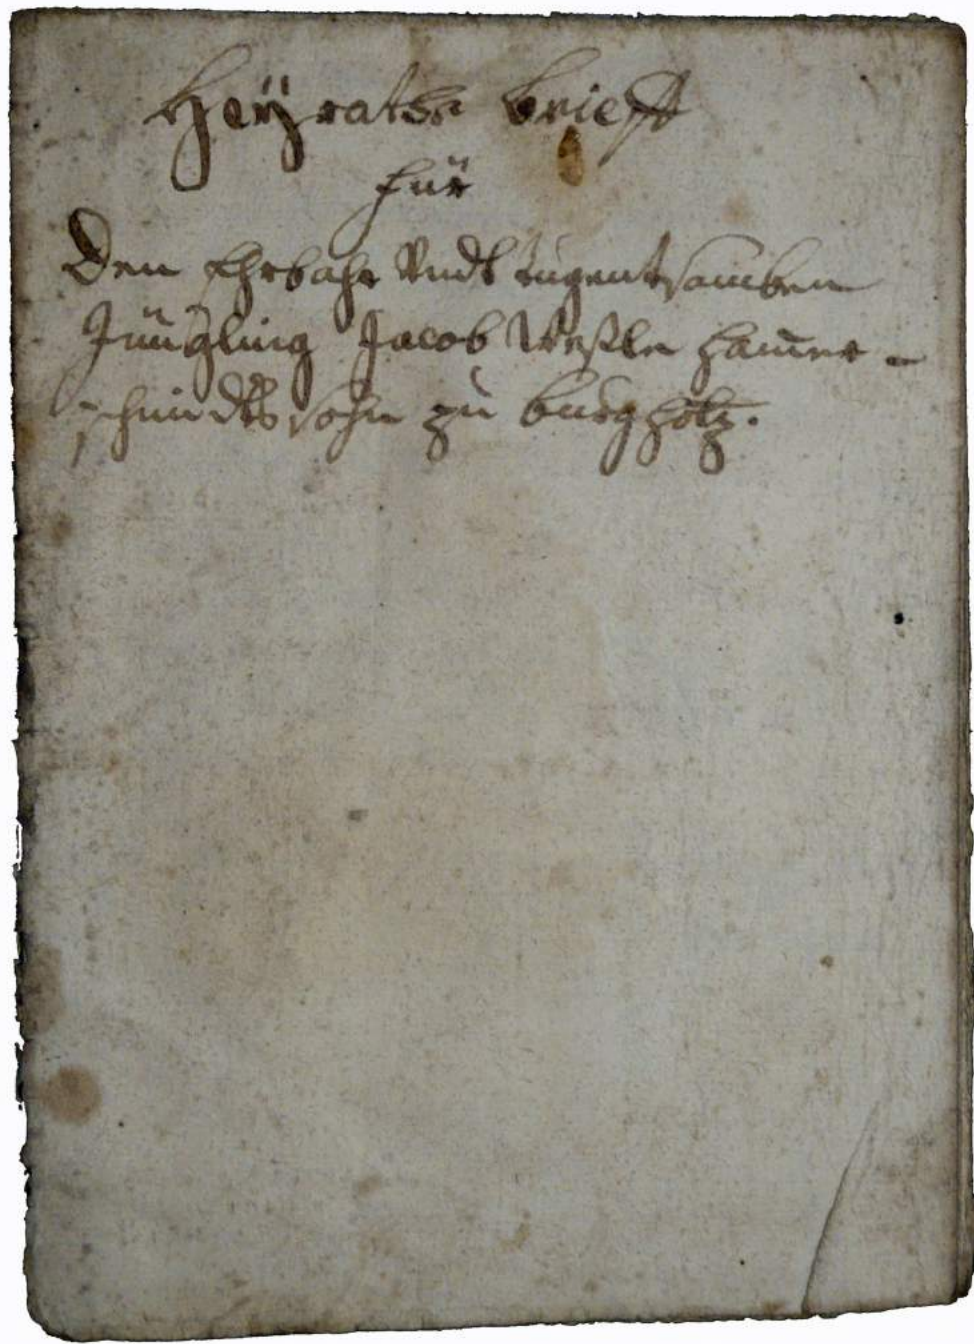 Heÿraths brieff
für
Den Ehrbahr Undt tugentsamben
Jüngling Jacob Weßle hamer-
schmidts sohn zu burgholtz.